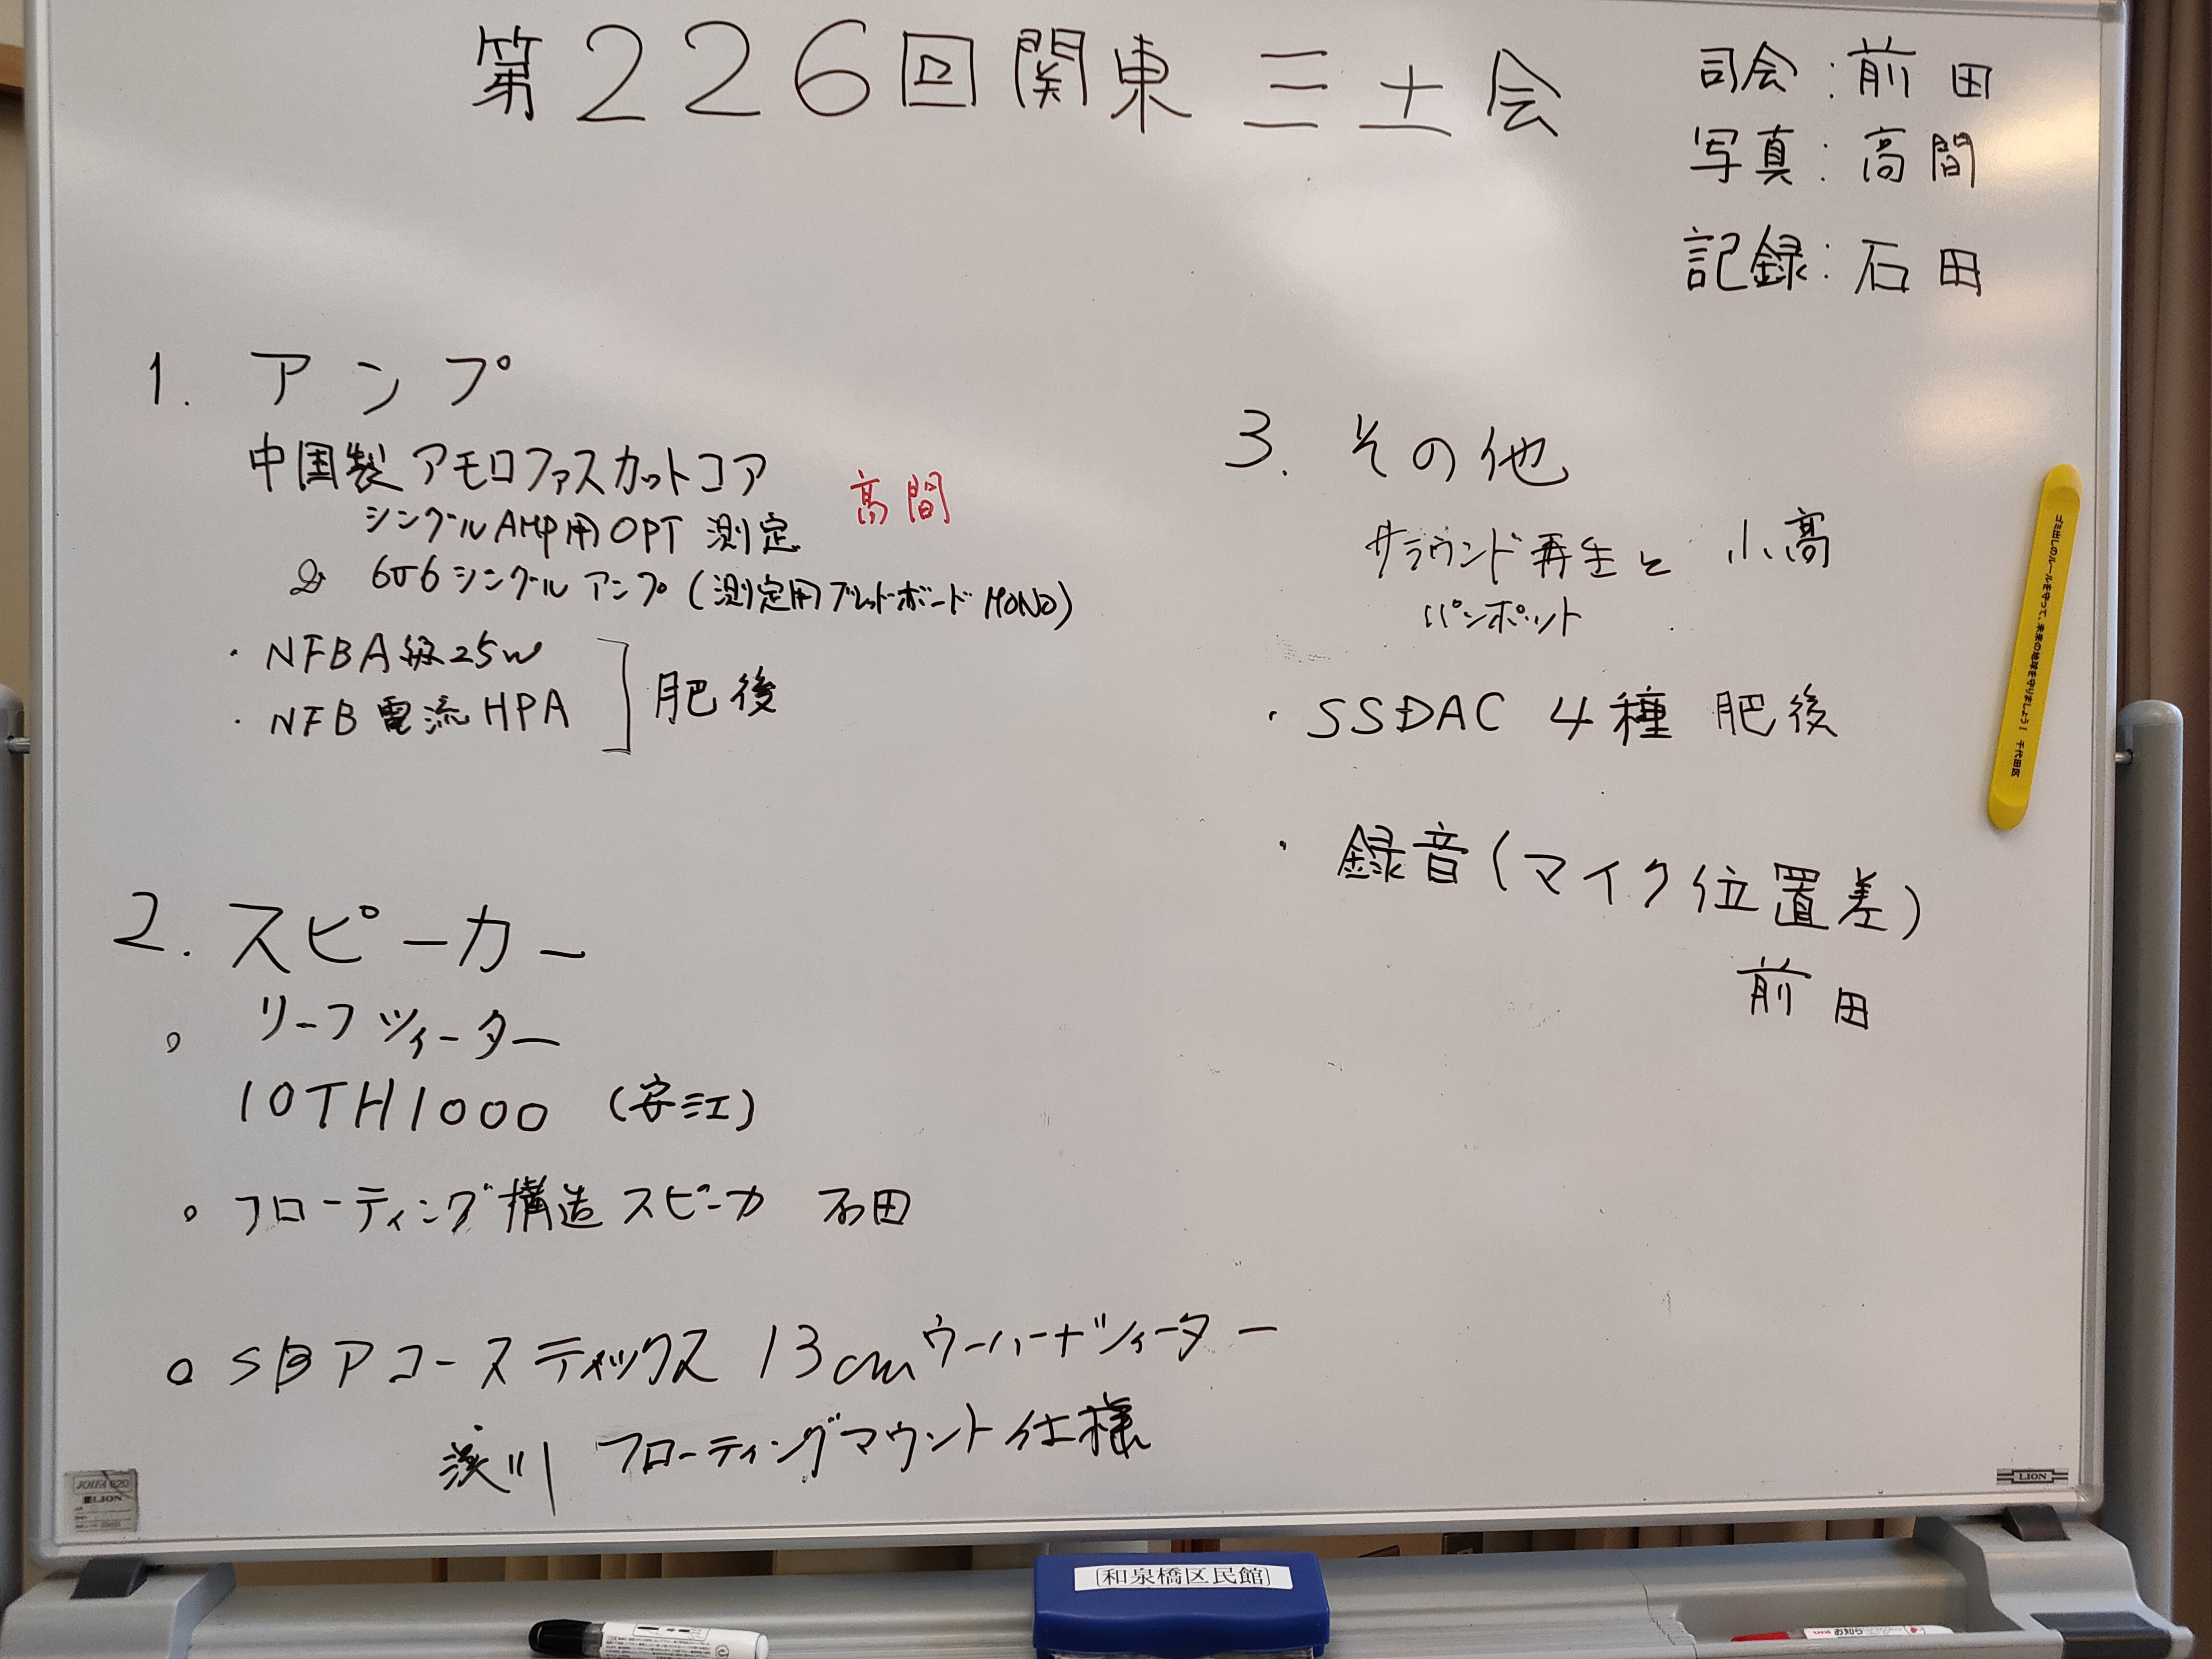 第226回関東三土会
司会:前田
写真:高間
記録:石田
1. アンプ
中国製アモロファスカットコア
シングルAMP用OPT 測定 高間
6V6シングルアンプ(測定用ブレッドボードMONO)
・NFBA級25W
・NFB電流HPA
肥後
2. スピーカー
○ リーフツィーター
10TH1000 (安江)
○ フローティング構造スピーカ 石田
○ SBアコースティックス 13cmウーハーナドツィーター
渋川 フローティングマウント仕様
3. その他
サラウンド再生と 小高
パンポット
・SSDAC 4種 肥後
・録音(マイク位置差)
前田
ゴミ出しのルールを守って、未来の地球を守りましょう! 千代田区
JOIFA 620
LION
LION
[和泉橋区民館]